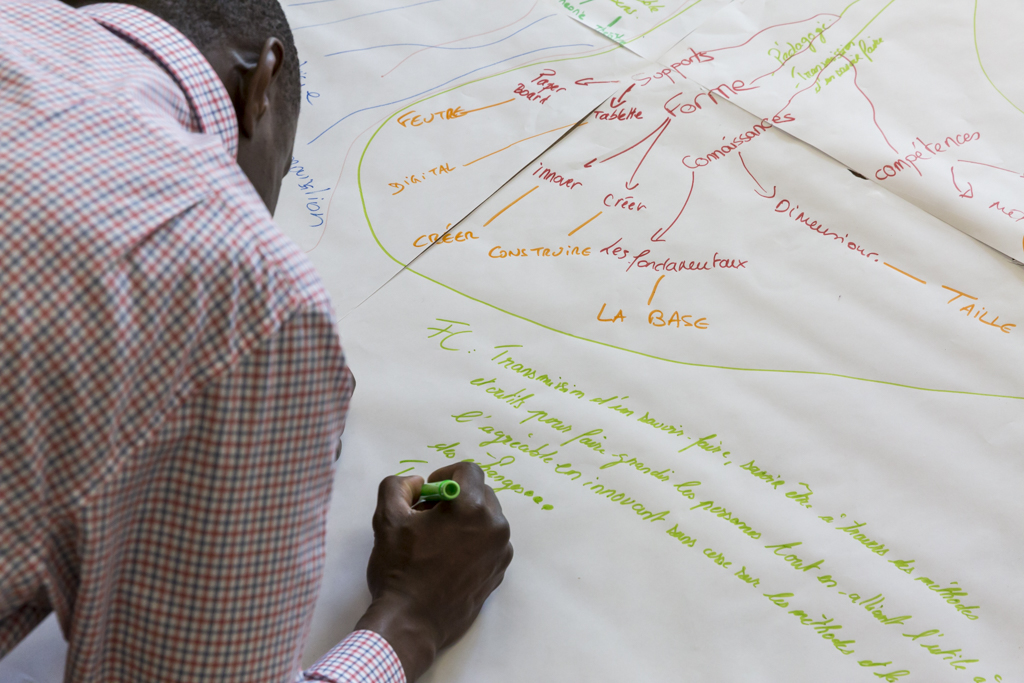 Pédagogie
Transmission
d'un savoir faire
Supports
Paper
Board
Tablette
Forme
FEUTRE
Connaissances
compétences
DIGITAL
innover
Créer
Dimension.
CRÉER
CONSTRUIRE
Les fondamentaux
TAILLE
LA BASE
FC: Transmission d'un savoir-faire, savoir être à travers des méthodes
et outils pour faire grandir les personnes tout en alliant l'utile à
l'agréable en innovant sans cesse sur les méthodes et la